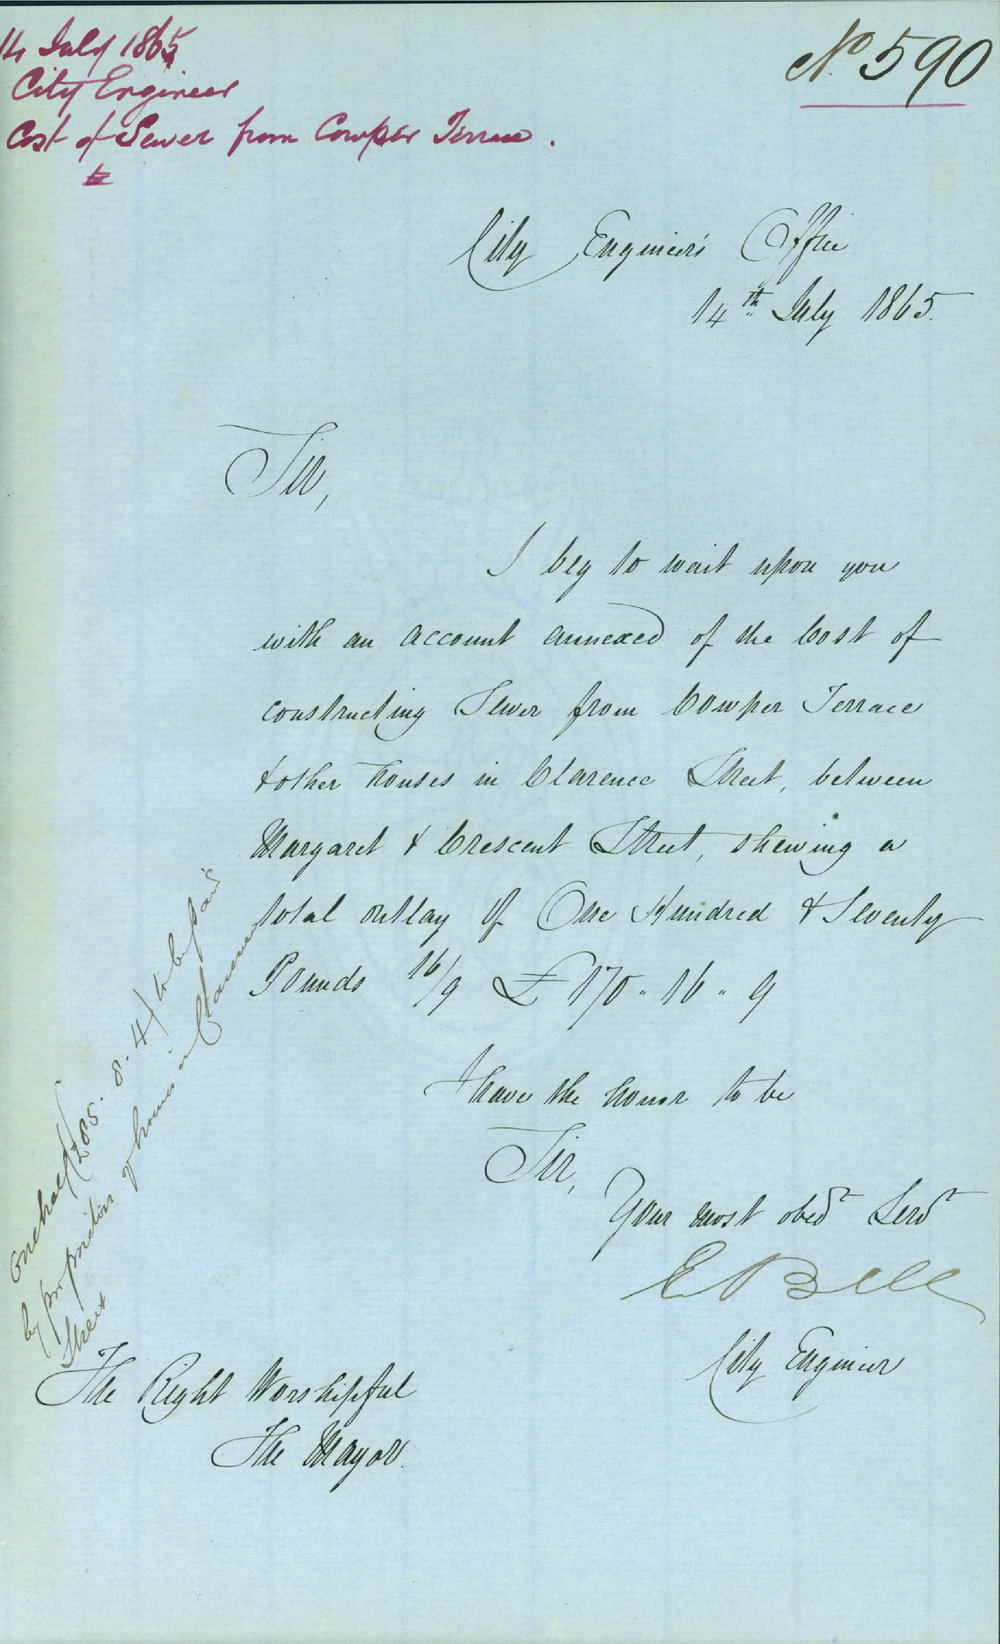 14 July 1865
City Engineer
Cost of Sewer from Cowper Terrace.
No 590
City Engineer's Office
14th July 1865.
Sir,
I beg to wait upon you
with an account annexed of the Cost of
constructing Sewer from Cowper Terrace
& other houses in Clarence Street, between
Margaret & Crescent Street, shewing a
total outlay of One Hundred & Seventy
Pounds 16/9 £170-16-9
I have the honor to be
Sir,
Your most obedt Servt
E Bell
City Engineer
The Right Worshipful
The Mayor.
One half (£85.8.4) to be paid
by proprietors of houses in Clarence
Street